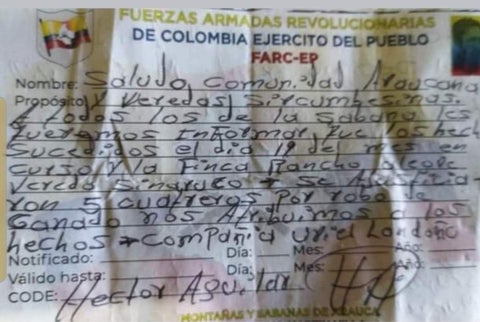 FUERZAS ARMADAS REVOLUCIONARIAS
DE COLOMBIA EJERCITO DEL PUEBLO
FARC-EP
Nombre: Saludo, Comunidad Araucana
Propósito Y Veredas Sircumbesinas.
A todos los de la Sabana les
Queremos Informar, que los hech
Sucedidos el dia 19 del mes en
curso y la Finca Rancho
Vereda Sinaruco
ron 5 cuatreros por robo de
Ganado nos Atribuimos a los
hechos - Compañia Uriel Londoño
Notificado: Día: Mes: Año:
Válido hasta: Día: Mes: Año:
CODE: Hector Aguilar HA
MONTAÑAS Y SABANAS DE ARAUCA